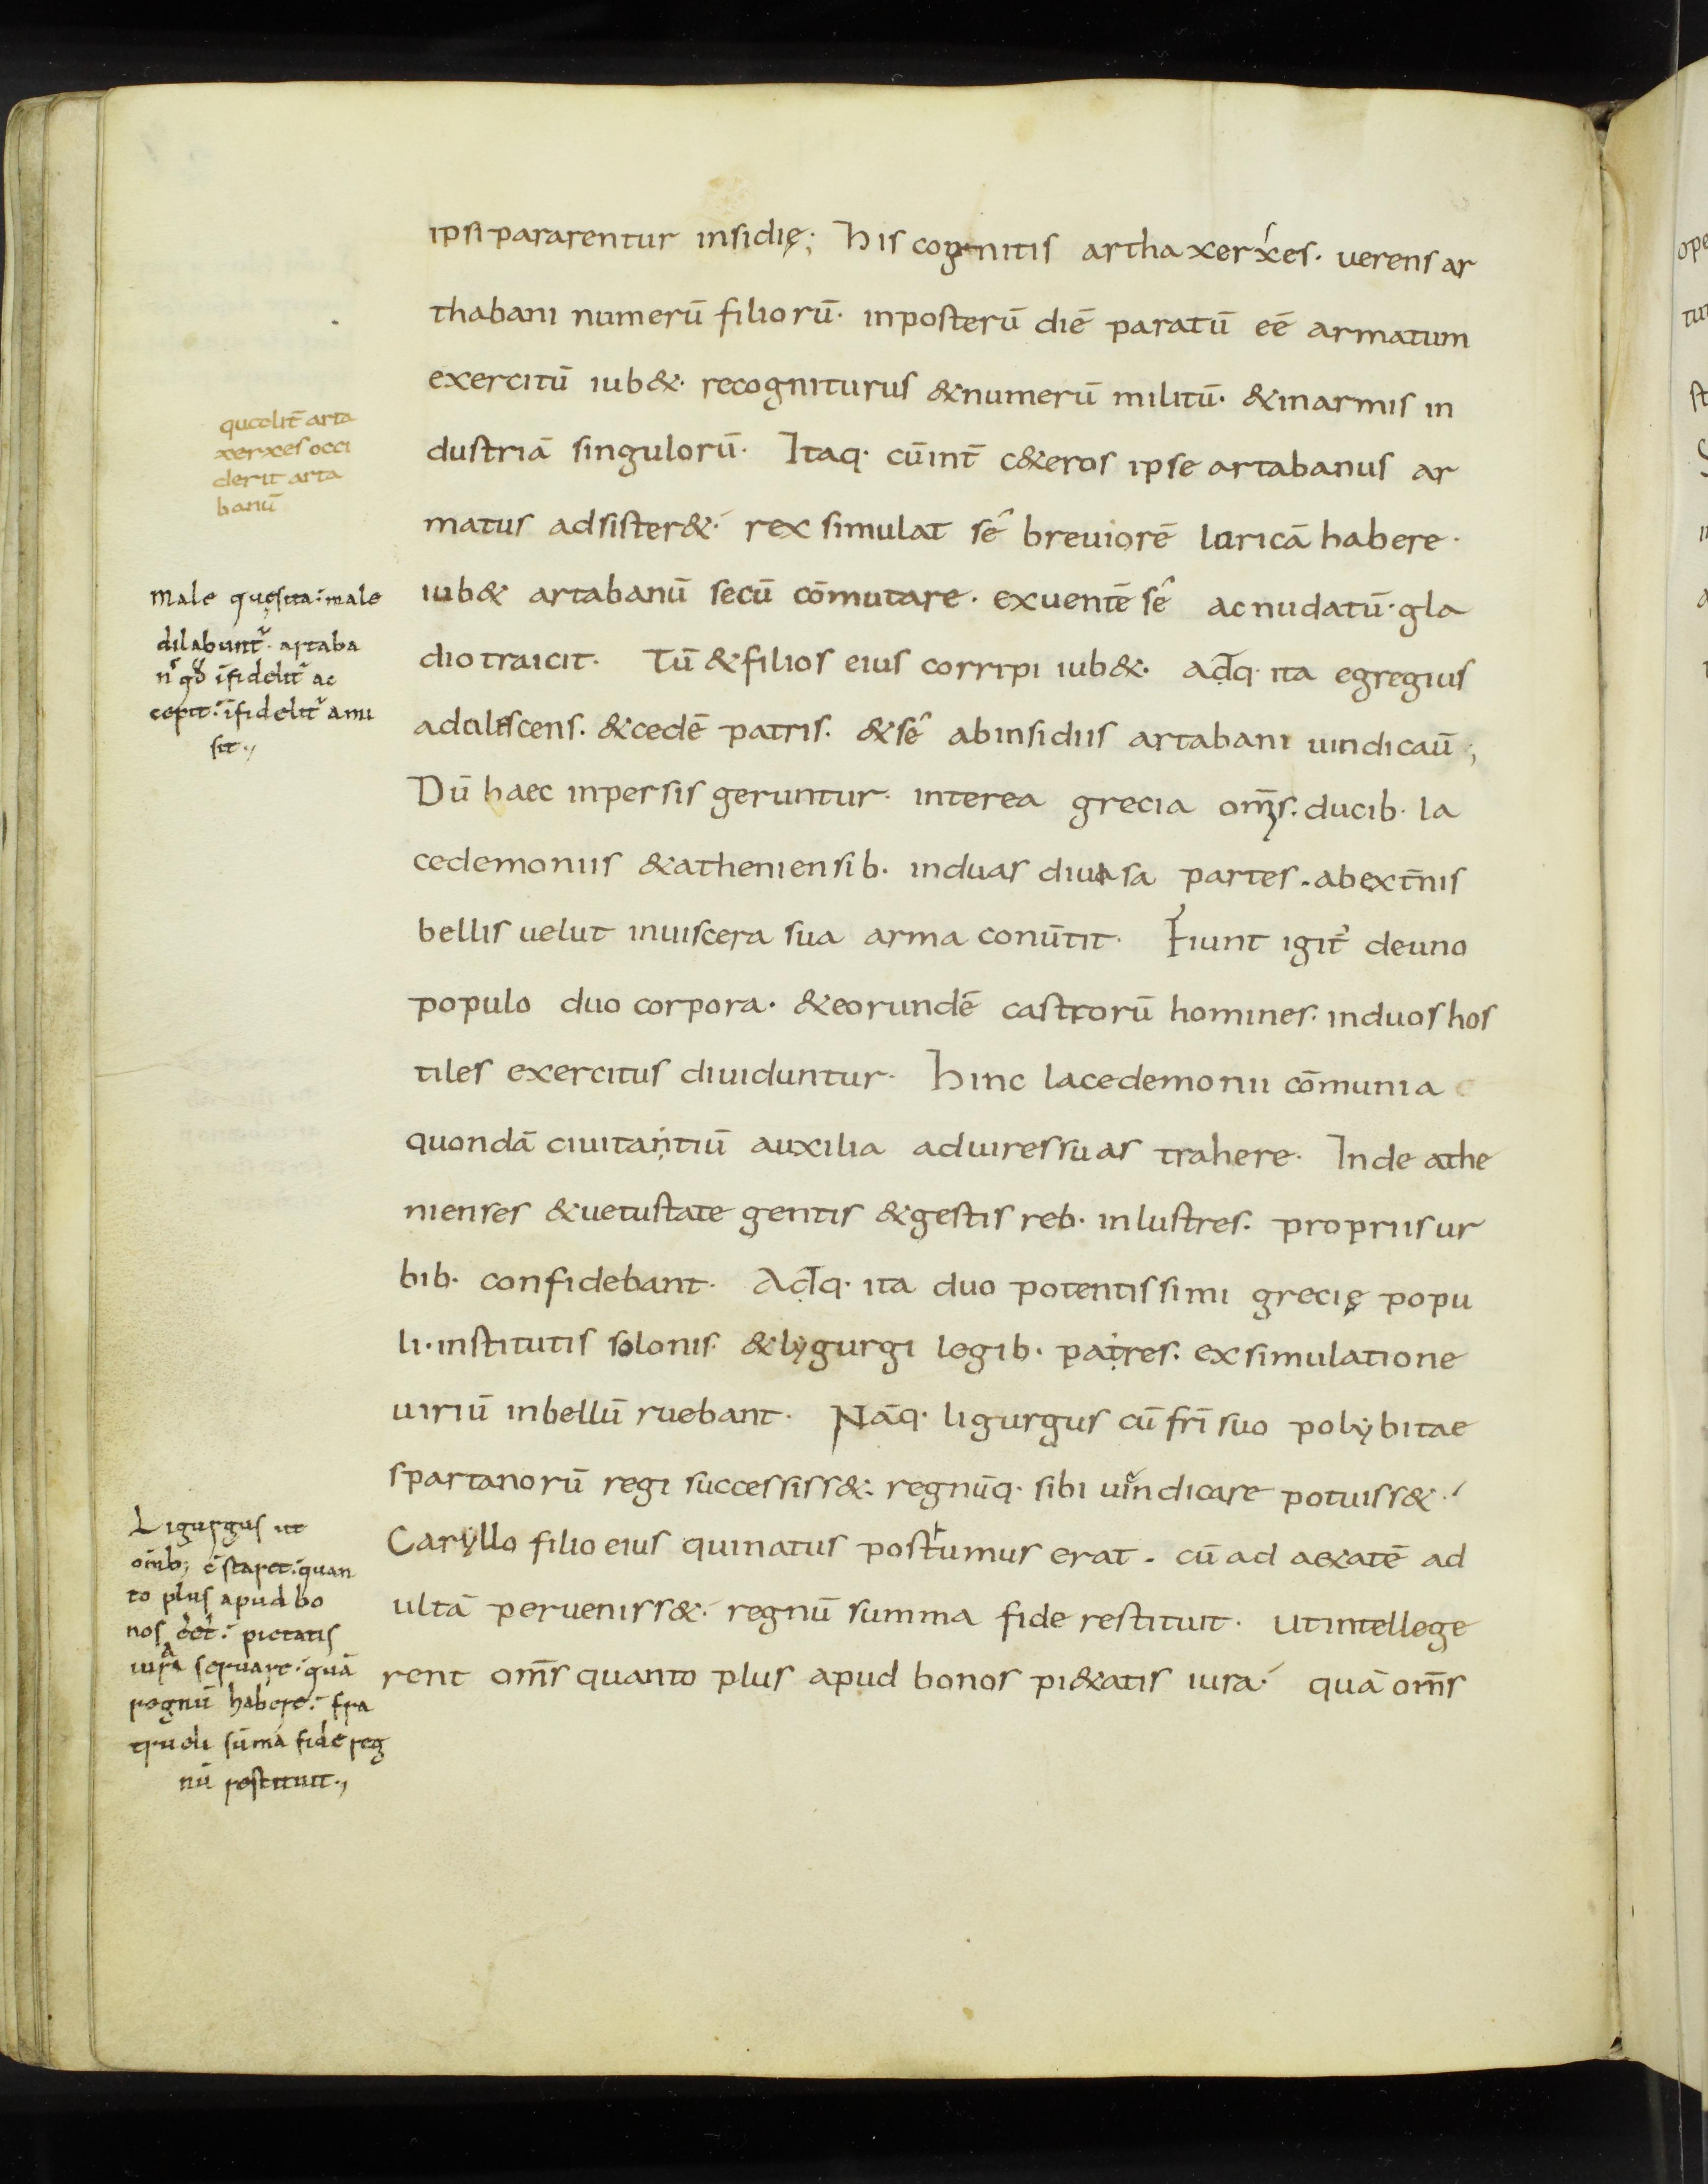 ipsi pararentur insidię; his cognitis arthaxerxes. uerens ar
thabani numerū filiorū. inposterū diē paratū eē armatum
exercitū iub&. recogniturus &numerū militū. &inarmis in
dustriā singulorū. Itaq. cūint̄ c&eros ipse artabanus ar
matus adsister&. rex simulat sē breuiorē loricā habere.
iub& artabanū secū cōmutare. exuentē sē ac nudatū. gla
dio traicit. Tū &filios eius corripi iub&. adq. ita egregius
adulescens. &cedē patris. &sē abinsidiis artabani uindicaū;
Dū haec inpersis geruntur. interea grecia om̄s. ducib. la
cedemoniis &atheniensib. induas diuisa partes. abext̄nis
bellis uelut inuiscera sua arma conūtit. Fiunt igit̄ deuno
populo duo corpora. &eorundē castrorū homines. induos hos
tiles exercitus diuiduntur. hinc lacedemonii cōmunia
quondā ciuitantiū auxilia aduires suas trahere. Inde athe
nienses &uetustate gentis &gestis reb. inlustres. propriis ur
bib. confidebant. Adq. ita duo potentissimi grecię popu
li. institutis solonis. &lygurgi legib. patres. exsimulatione
uiriū inbellū ruebant. Nāq. ligurgus cū fr̄i suo polybitae
spartanorū regi successiss&. regnūq. sibi uindicare potuiss&.
Caryllo filio eius qui natus postumus erat. cū ad aexatē ad
ultā perueniss&. regnū summa fide restituit. ut intellege
rent om̄s quanto plus apud bonos pi&atis iura. quā om̄s
qucolit̄ arta
xerxes occi
derit arta
banū
Male quęsita. male
dilabunt̄. artaba
īfidelit̄ ac
cepit. īfidelit̄ ami
sit.
Ligurgus ut
om̄ib; c̄staret. quan
to plus apud bo
nos eēt. pietatis
iura seruare. quā
regnū habere. fra
trueli sūma fide reg
nū restituit.